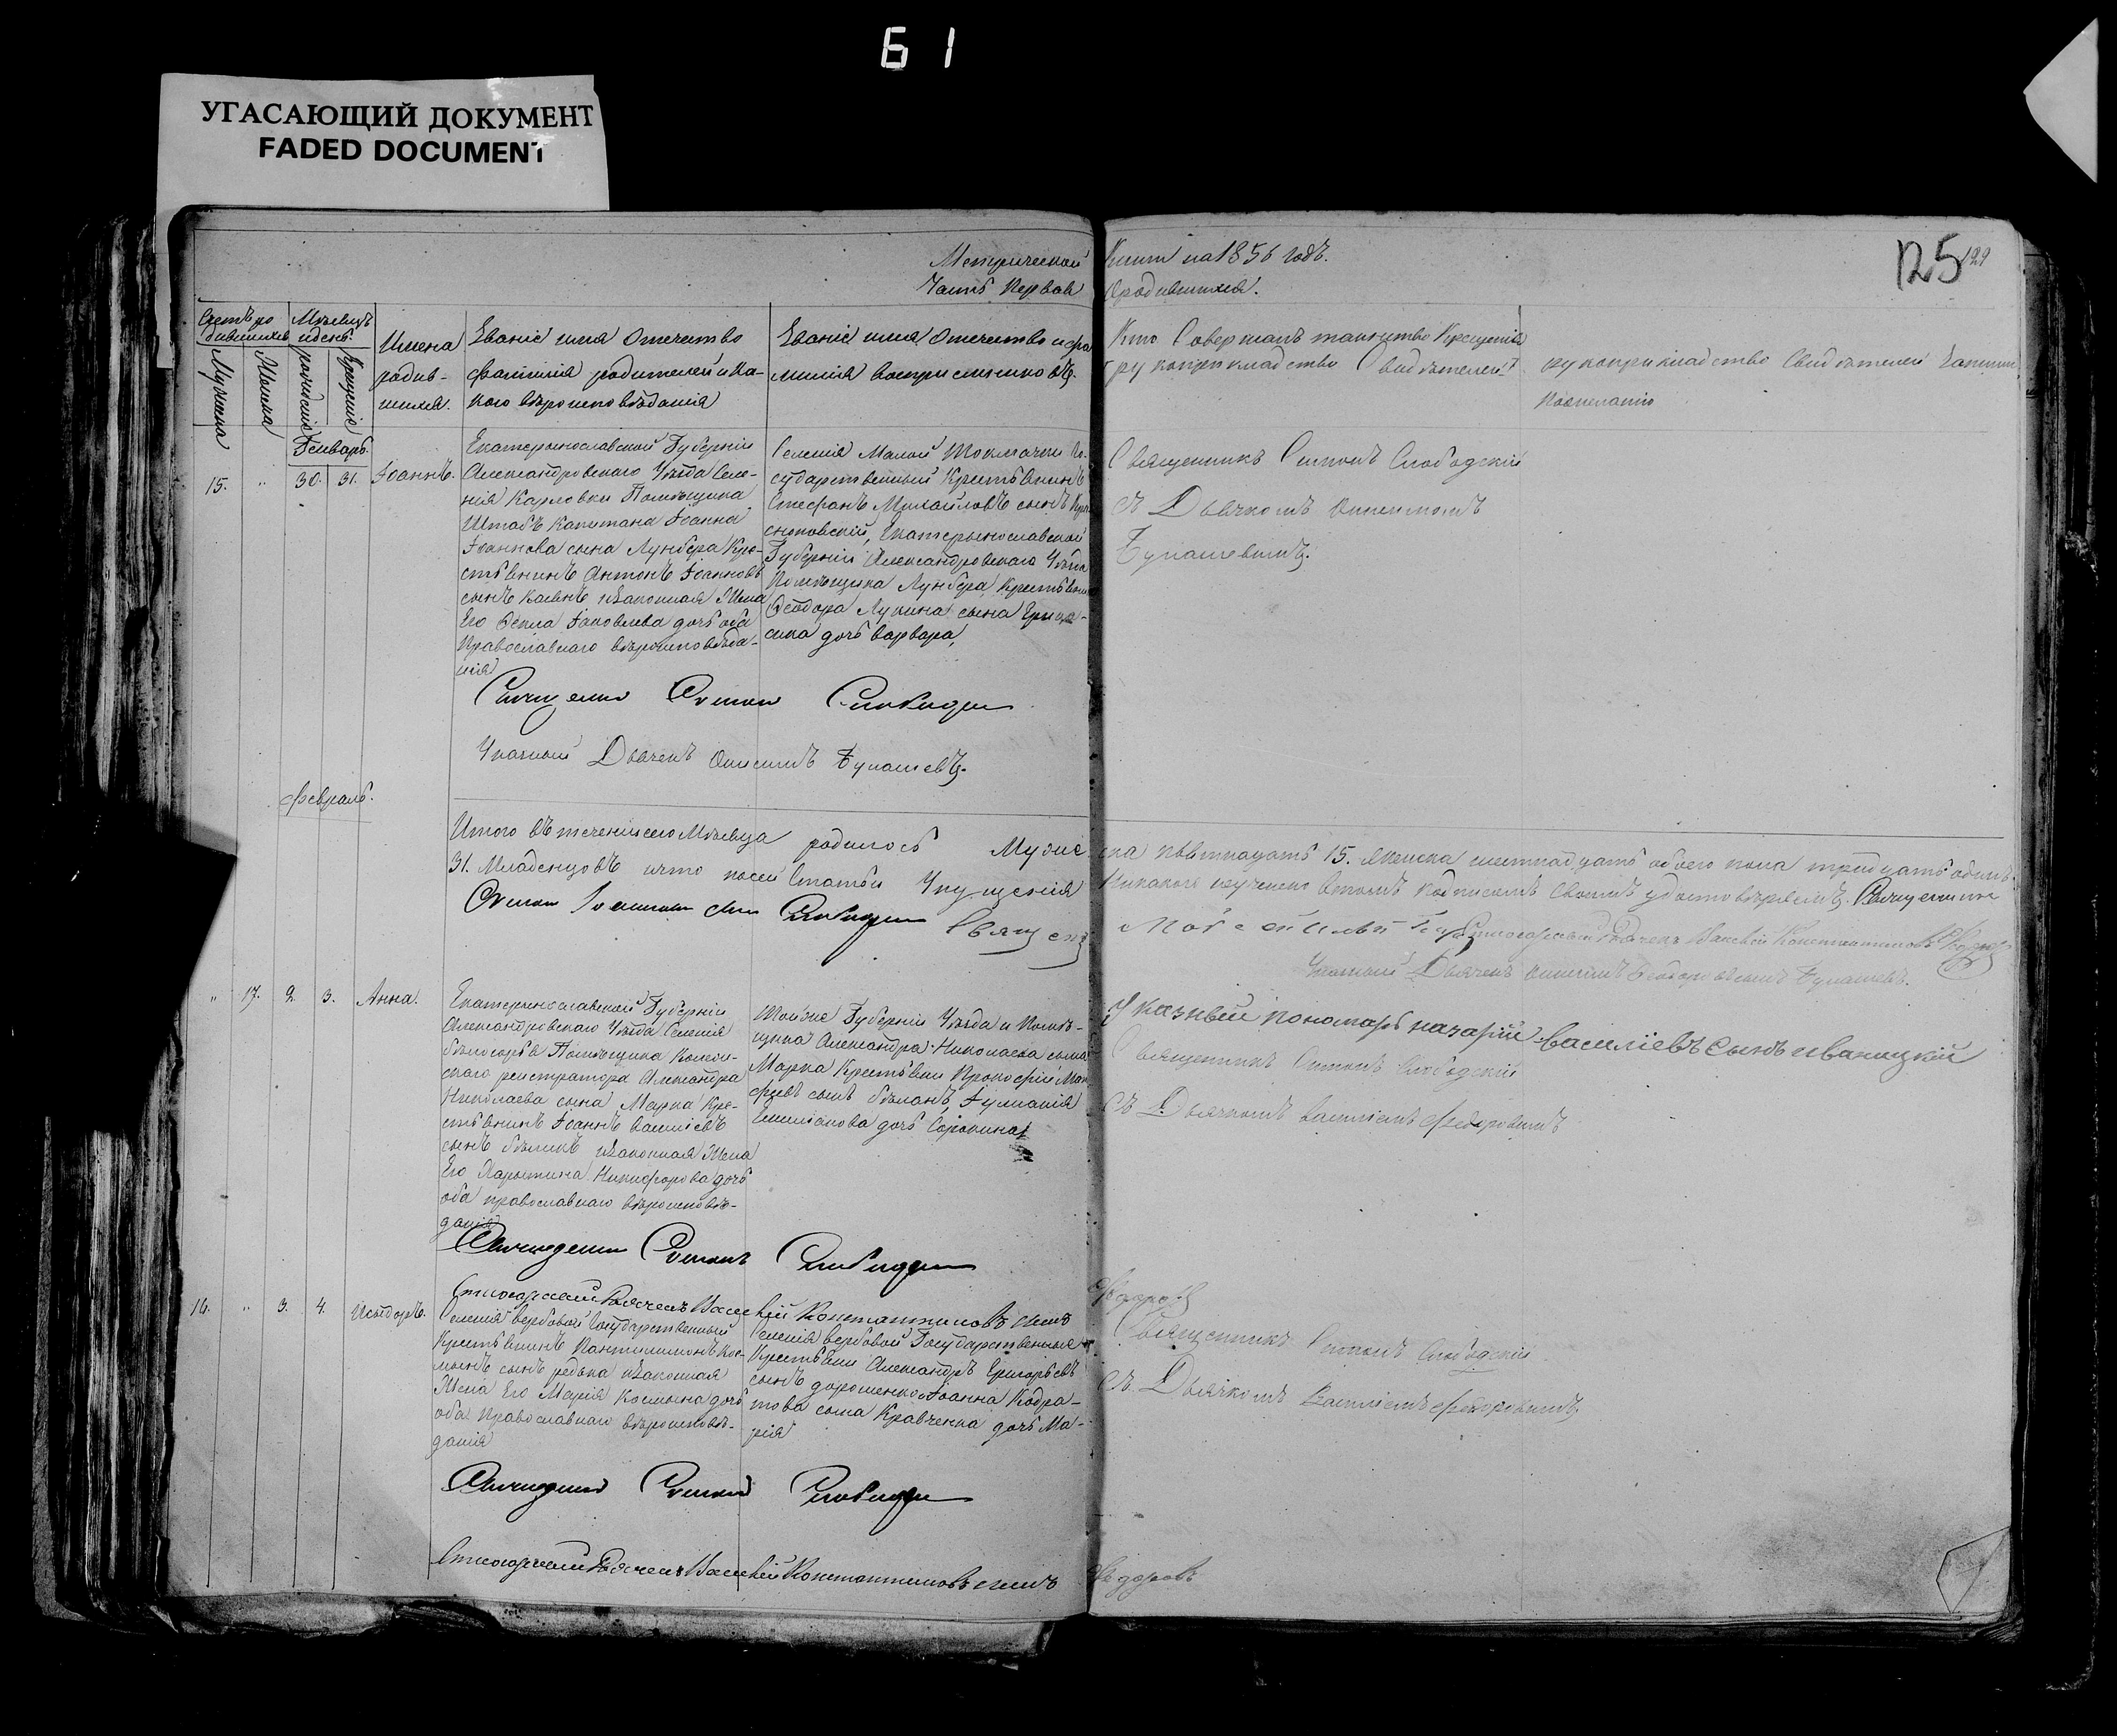 61
УГАСАЮЩИЙ ДОКУМЕНТ
FADED DOCUMENT
125
129
Метрической Книги на 1856 годъ.
Часть Первая О родившихся.
Счетъ родившихся
Мѣсяцъ и день.
Мужеска
Женска
рожденія
Крещенія
Имена родив-
шихся.
Званіе имя Отечество
фамилія родителей и ка-
кого вѣроисповѣданія
Званіе имя Отечество и фа
милія воспріемниковъ.
Кто Совершалъ таинство Крещенія
рукоприкладство Свидѣтелей
рукоприкладство Свидѣтелей записи
по желанію
Генварь.
15. " 30. 31. Іоаннъ.
Екатеринославской Губерніи
Александровскаго Уѣзда Селе-
нія Карловки Помѣщика
Штабъ Капитана Іоанна
Іоаннова сына Лунбера Кре-
стьянинъ Антонъ Іоанновъ
сынъ и Законная Жена
Его Іаковлева дочь оба
Православнаго вѣроисповѣда-
нія
Селенія Малой Токмачки Го-
сударственный Крестьянинъ
Стефанъ Михайловъ сынъ
Екатеринославской
Губерніи Александровскаго Уѣзда
Помѣщика Лунбера Крестьянина
Ѳеодора Лукина сына
дочь Варвара,
Священникъ Симонъ Слободскій
съ Дьячкомъ Онисимомъ
Букашевымъ.
Священникъ Симонъ Слободскій
Указный Дьячекъ Онисимъ Букашевъ.
Февраль.
Итого въ теченіи сего Мѣсяца родилось Мужеска пятнадцать 15. Женска шестнадцать обоего пола тридцать одинъ
31. Младенцовъ и что по сей Статьи Упущенія Никакого неучинено въ томъ подписомъ своимъ удостовѣряемъ. Священникъ
Симонъ Іоанновъ сынъ Слободскій Священ
Дьячекъ Василій Константиновъ
Указный Дьячекъ Онисимъ сынъ Букашевъ.
Указный пономарь назарій василіевъ сынъ иваницкій
" 17. 2. 3. Анна.
Екатеринославской Губерніи
Александровскаго Уѣзда Селенія
бѣлогорья Помѣщика Коллеж-
скаго регистратора Александра
Николаева сына Марка Кре-
стьянинъ Іоаннъ Василіевъ
сынъ бѣликъ и Законная Жена
Его Никифорова дочь
оба православнаго вѣроисповѣ-
данія
Той же Губерніи Уѣзда и Помѣ-
щика Александра Николаева сына
Марка Крестьяни Прокофій
сынъ Іуліанія
Емиліанова дочь Сорокина
Священникъ Симонъ Слободскій
съ Дьячкомъ Василіемъ Федоровымъ
Священникъ Симонъ Слободскій
Дьячекъ Василій Константиновъ сынъ Федоровъ
16. " 3. 4. Исидоръ.
Селенія вербовой Государственный
Крестьянинъ Пантилимонъ Кос-
минъ сынъ редька и Законная
Жена Его Марія Космина дочь
оба Православнаго вѣроисповѣ-
данія
Селенія вербовой Государственныя
Крестьяни Александръ Григорьевъ
сынъ дорошенко и Іоанна Кодра-
това сына Кравченка дочь Ма-
рія
Священникъ Симонъ Слободскій
съ Дьячкомъ Василіемъ Федоровымъ
Священникъ Симонъ Слободскій
Дьячекъ Василій Константиновъ сынъ Федоровъ